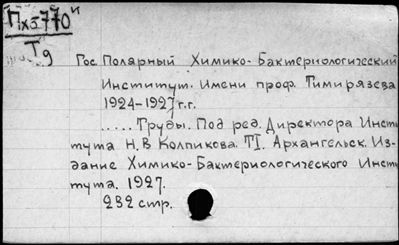 Пхз770и
Т9
Гос Полярный Химико-Бактериологический
Институт. Имени проф. Тимирязева
1924-1927 г.г.
..... Труды. Под ред. Директора Инсти
тута Н.В Колпикова. TI. Архангельск. Из-
дание Химико-Бактериологического Инсти
тута. 1927.
232 стр.